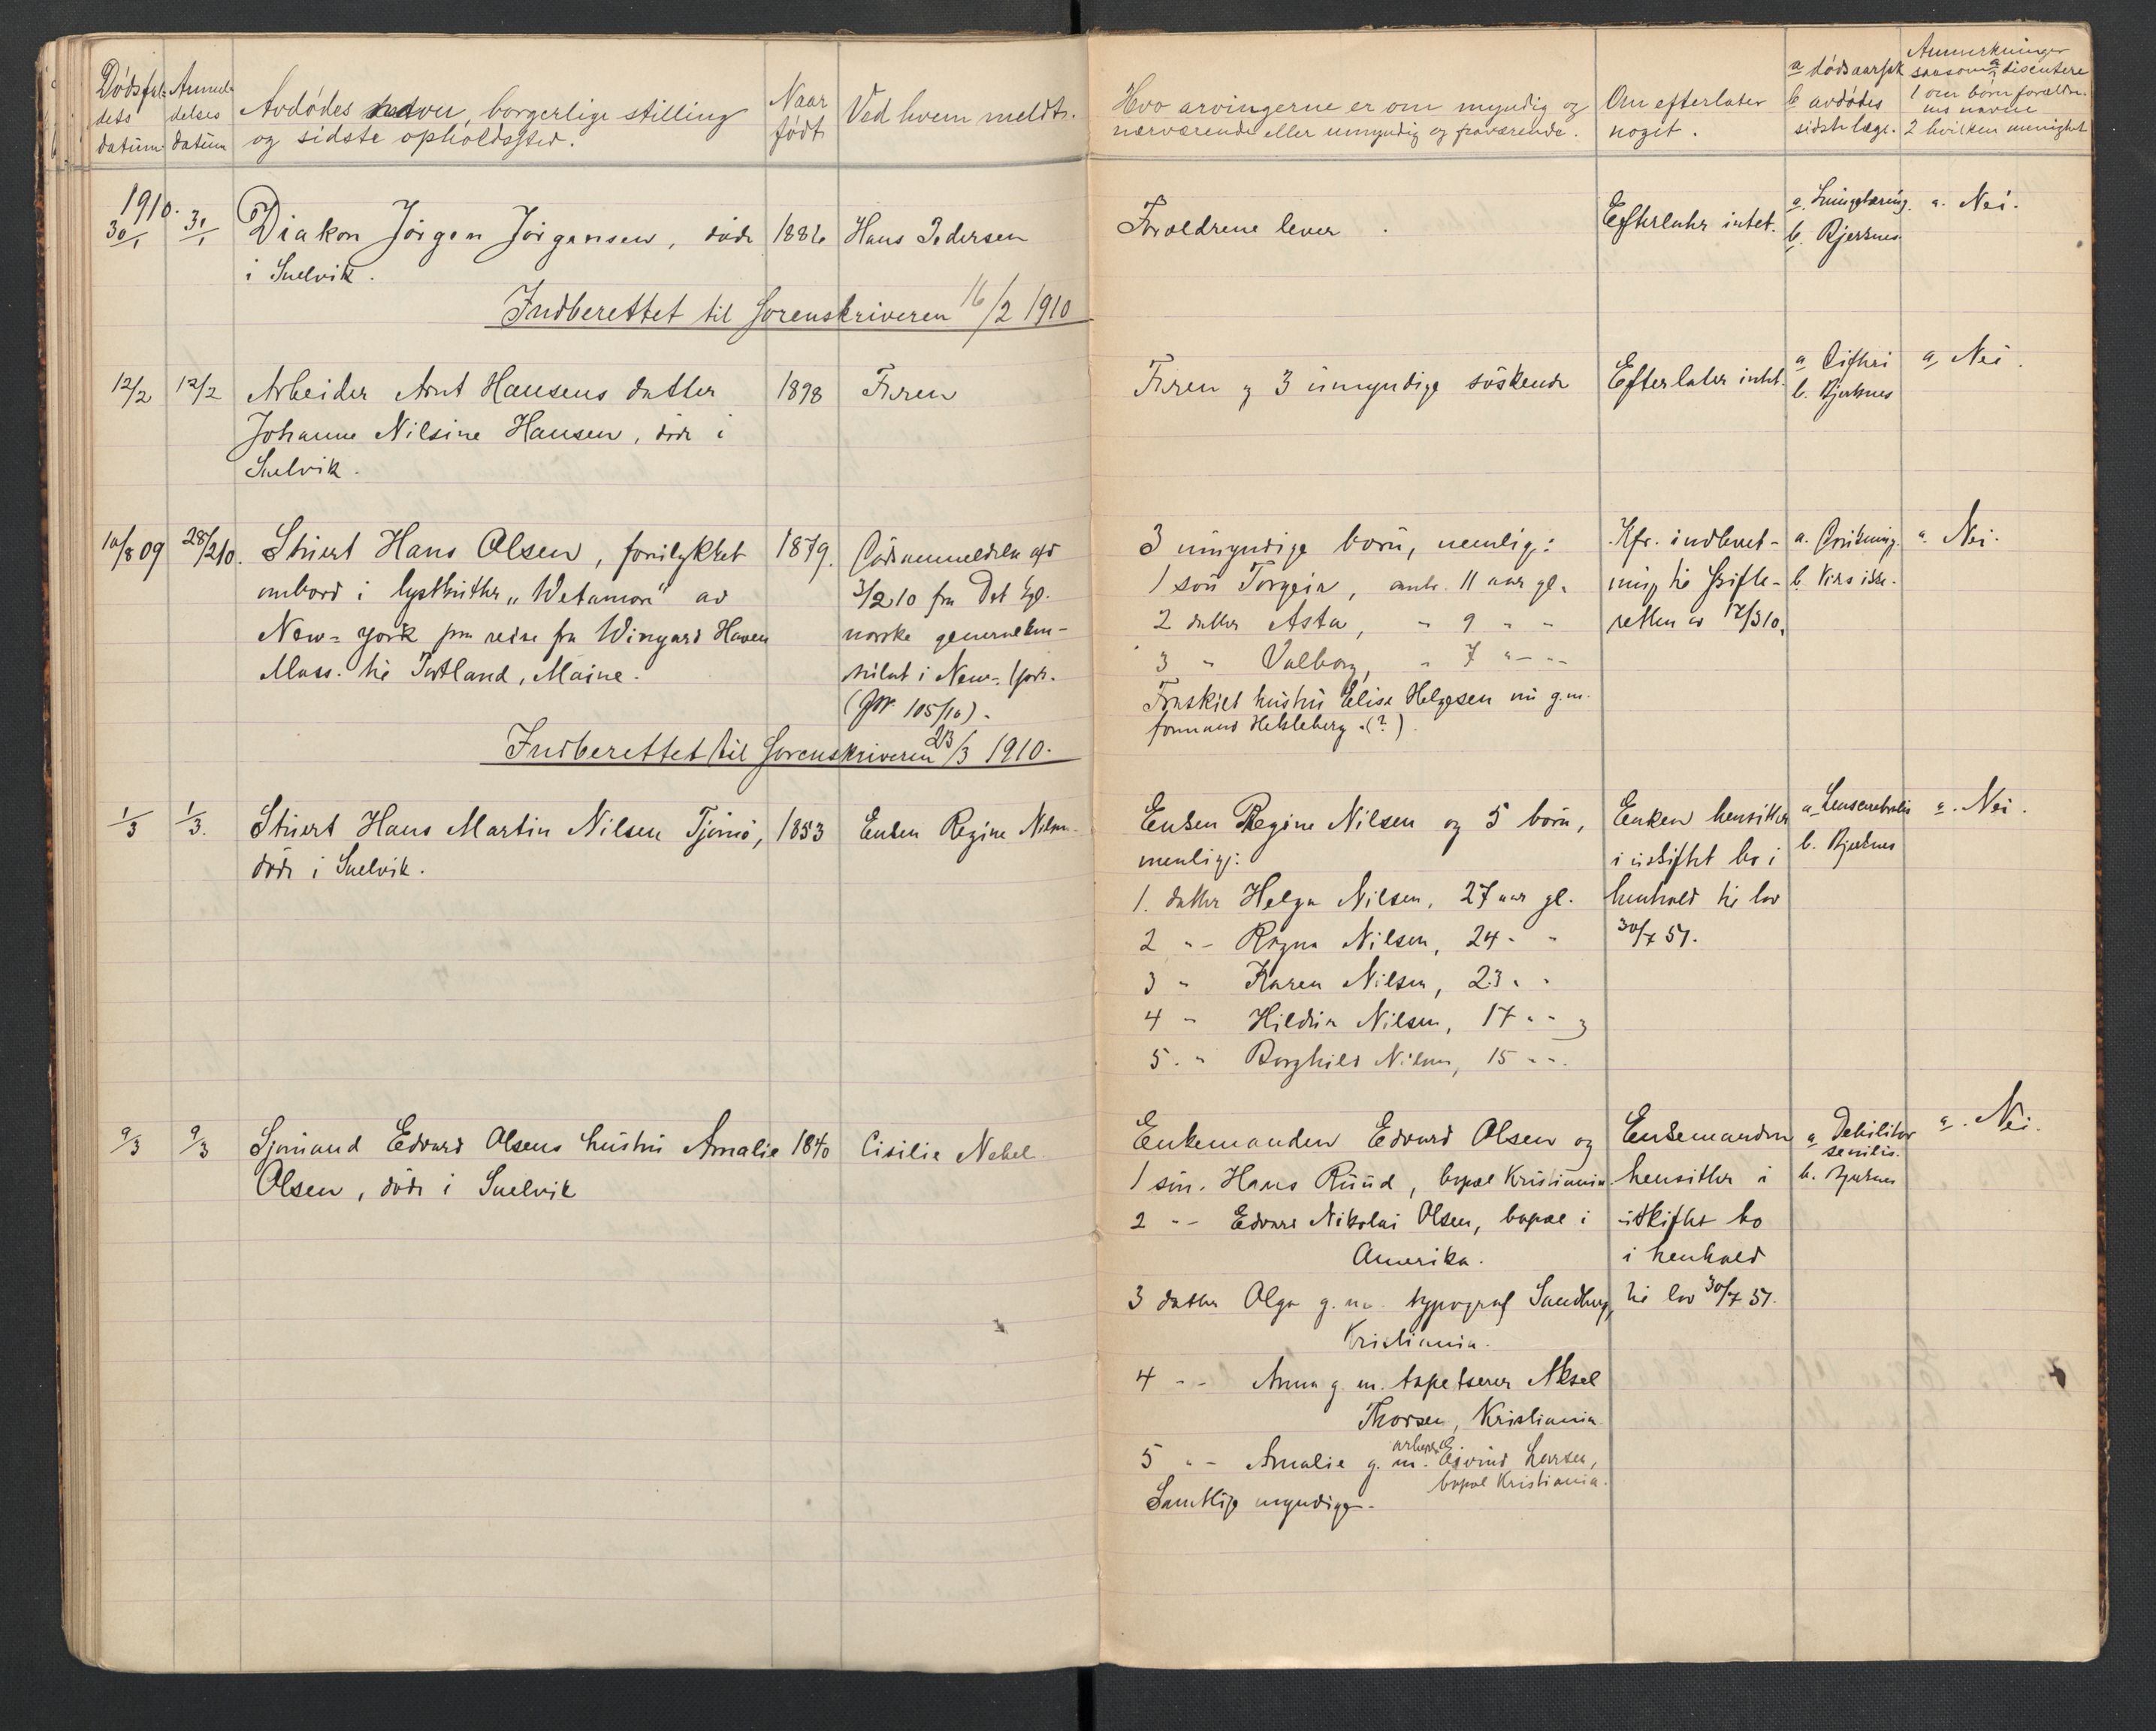 Dødsfal- Anmel-
dets delses
datum datum
Avdødes navn, borgerlige stilling
og sidste opholdssted.
Naar
født
Ved hvem meldt.
Hvo arvingerne er om myndig og
nærværende eller umyndig og fraværende.
Om efterlater
noget.
a dødsaarsak
b avdødes
sidste læge.
Anmerkninger
saasom a
1 om børn forældre-
nes navne
2 hvilken
1910.
30/1 31/1 Diakon Jørgen Jørgensen, døde 1886 Hans Pedersen
i Svelvik.
Forældrene lever. Efterlater intet. a. Lungetæring. a. Nei.
b. Bjerknes
Indberettet til Sorenskriveren 16/2 1910
12/2 12/2 Arbeider Arnt Hansens datter 1898 Faren
Johanne Nilsine Hansen, døde i
Svelvik.
Faren og 3 umyndige søskende Efterlater intet. a Difteri a, Nei.
b. Bjerknes
10/8 09 28/2 10. Stuert Hans Olsen, forulykket 1879. Dødsanmeldelse afd
ombord i lystkutter "Wetamoe" av 3/2 10 fra Det kgl.
New-York paa reise fra Wingard Haven norske generalkon-
Mass. til Portland, Maine. sulat i New-York.
(Jour 105/10).
3 umyndige børn, nemlig: Kfr. indberet- a. Drukning. a. Nei.
1 søn Torgeir, omtr. 11 aar gl. ning til skifte- b. Vides ikke.
2 datter Asta, " 9 " " retten av 12/3 10.
3 " Valborg, " 7 " "
Fraskilt hustru Elise Helgesen nu g.m.
formand Heksleberg.(?).
Indberettet til Sorenskriveren 23/3 1910.
1/3 1/3. Stuert Hans Martin Nilsen Tjømø, 1853 Enken Regine Nilsen.
døde i Svelvik.
Enken Regine Nilsen og 5 børn, Enken hensitter a. a. Nei.
nemlig: i uskiftet bo i b. Bjerknes
1. datter Helga Nilsen, 27 aar gl. henhold til lov
2 " Ragna Nilsen, 24 " " 30/7 51.
3 " Karen Nilsen, 23 " "
4 " Hildur Nilsen, 17 " " og
5. " Borghild Nilsen, 15 " ".
9/3 9/3 Sjømand Edvard Olsens hustru Amalie 1840 Cisilie Nebel
Olsen, døde i Svelvik
Enkemanden Edvard Olsen og Enkemanden a Debilitas a. Nei.
senilis.
1 søn. Hans Ruud, bopæl Kristiania. hensitter i b. Bjerknes
2 " Edvard Nikolai Olsen, bopæl i uskiftet bo
Amerika. i henhold
3 datter Olga g. m. typograf Sandberg, til lov 30/7 51.
Kristiania.
4 " Anna g. m. tapetserer Aksel
Thorsen, Kristiania
5 " Amalie g. m. arbeider Eivind Larsen,
bopæl Kristiania.
Samtlige myndige.